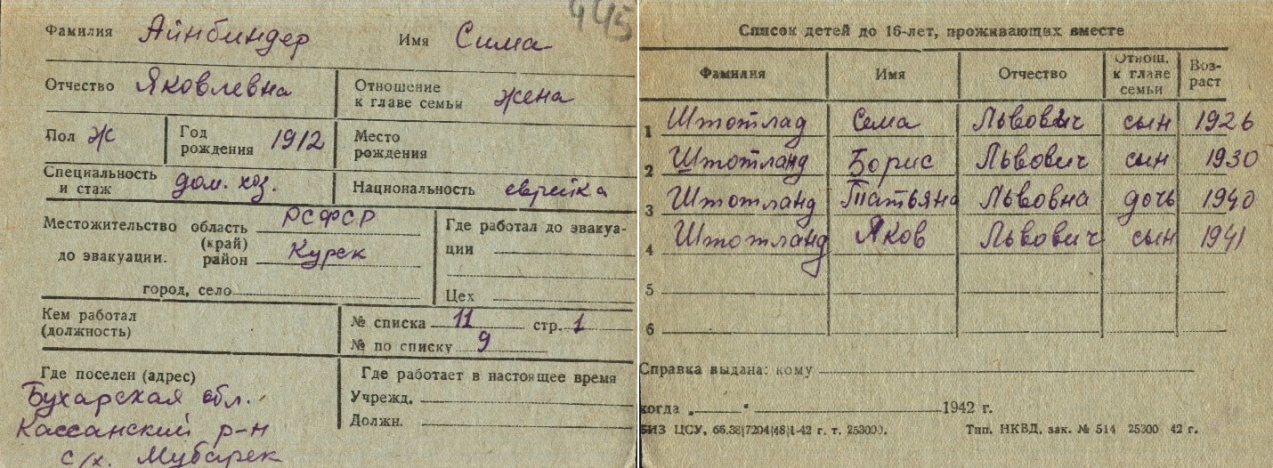 445
Фамилия Айнбиндер Имя Сима
Отчество Яковлевна Отношение к главе семьи жена
Пол Ж Год рождения 1912 Место рождения
Специальность и стаж дом. хоз. Национальность еврейка
Местожительство область РСФСР Где работал до эвакуа-
(край)
до эвакуации. район Курск ции
город, село Цех
Кем работал (должность) № списка 11 стр. 1
№ по списку 9
Где поселен (адрес) Где работает в настоящее время
Бухарская обл. Учрежд.
Кассанский р-н Должн.
с/х. Мубарек
Список детей до 16-лет, проживающих вместе
Фамилия Имя Отчество Отнош. к главе семьи Воз-раст
1 Штотлад Сема Львович сын 1926
2 Штотланд Борис Львович сын 1930
3 Штотланд Татьяна Львовна дочь 1940
4 Штотланд Яков Львович сын 1941
5
6
Справка выдана: кому
когда „ “ 1942 г.
БИЗ ЦСУ, 66.38|7204|48|1-42 г. т. 253000. Тип. НКВД, зак. № 514 25300 42 г.